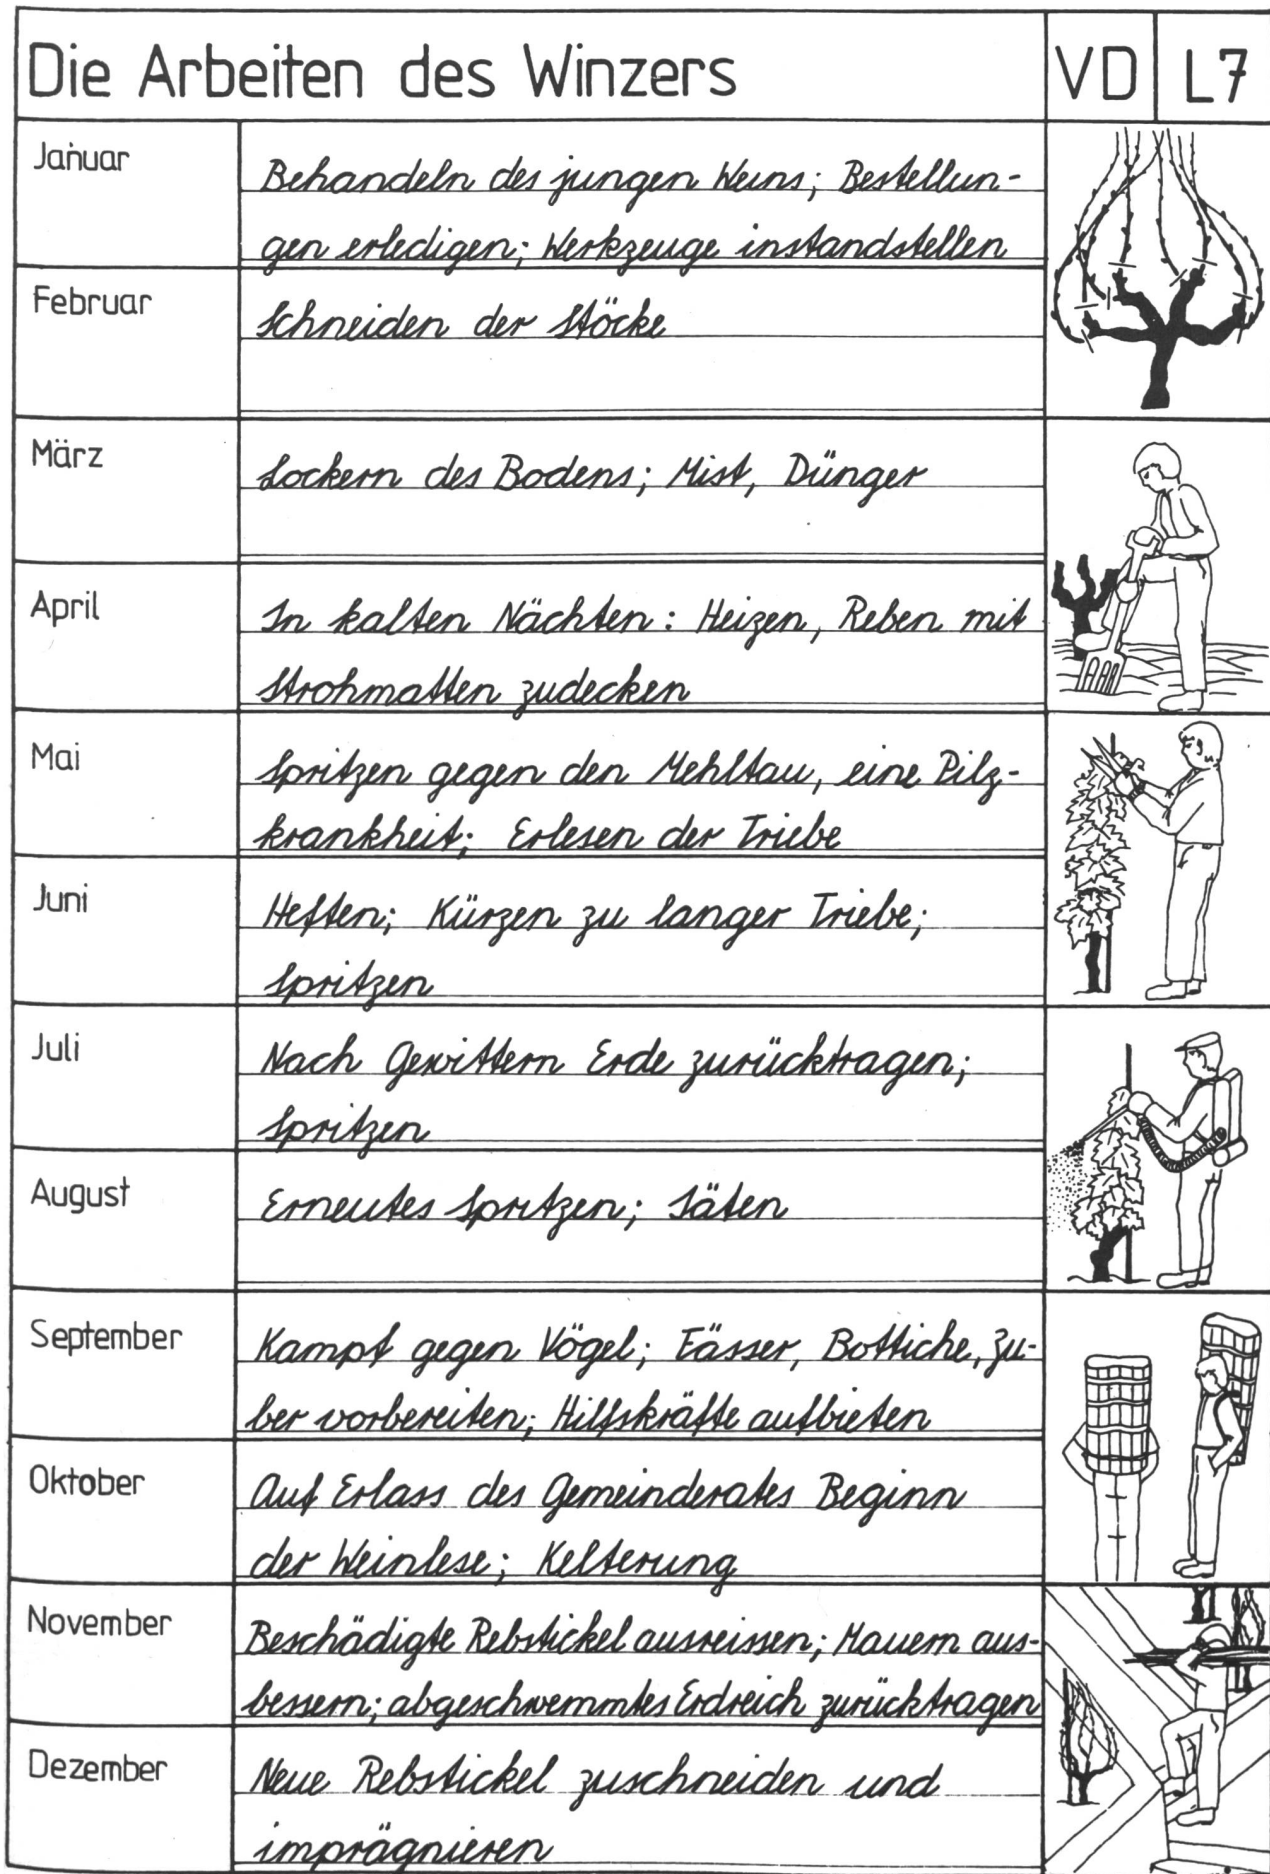 Die Arbeiten des Winzers
VD
L7
Januar
Behandeln des jungen Weins; Bestellun-
gen erledigen; Werkzeuge instandstellen
Februar
Schneiden der Stöcke
März
Lockern des Bodens; Mist, Dünger
April
In kalten Nächten: Heizen, Reben mit
Strohmatten zudecken
Mai
Spritzen gegen den Mehltau, eine Pilz-
krankheit; Erlesen der Triebe
Juni
Heften; Kürzen zu langer Triebe;
Spritzen
Juli
Nach Gewittern Erde zurücktragen;
Spritzen
August
Erneutes Spritzen; Jäten
September
Kampf gegen Vögel; Fässer, Bottiche, Zu-
ber vorbereiten; Hilfskräfte aufbieten
Oktober
Auf Erlass des Gemeinderates Beginn
der Weinlese; Kelterung
November
Beschädigte Rebstickel ausreissen; Mauern aus-
bessern; abgeschwemmtes Erdreich zurücktragen
Dezember
Neue Rebstickel zuschneiden und
imprägnieren